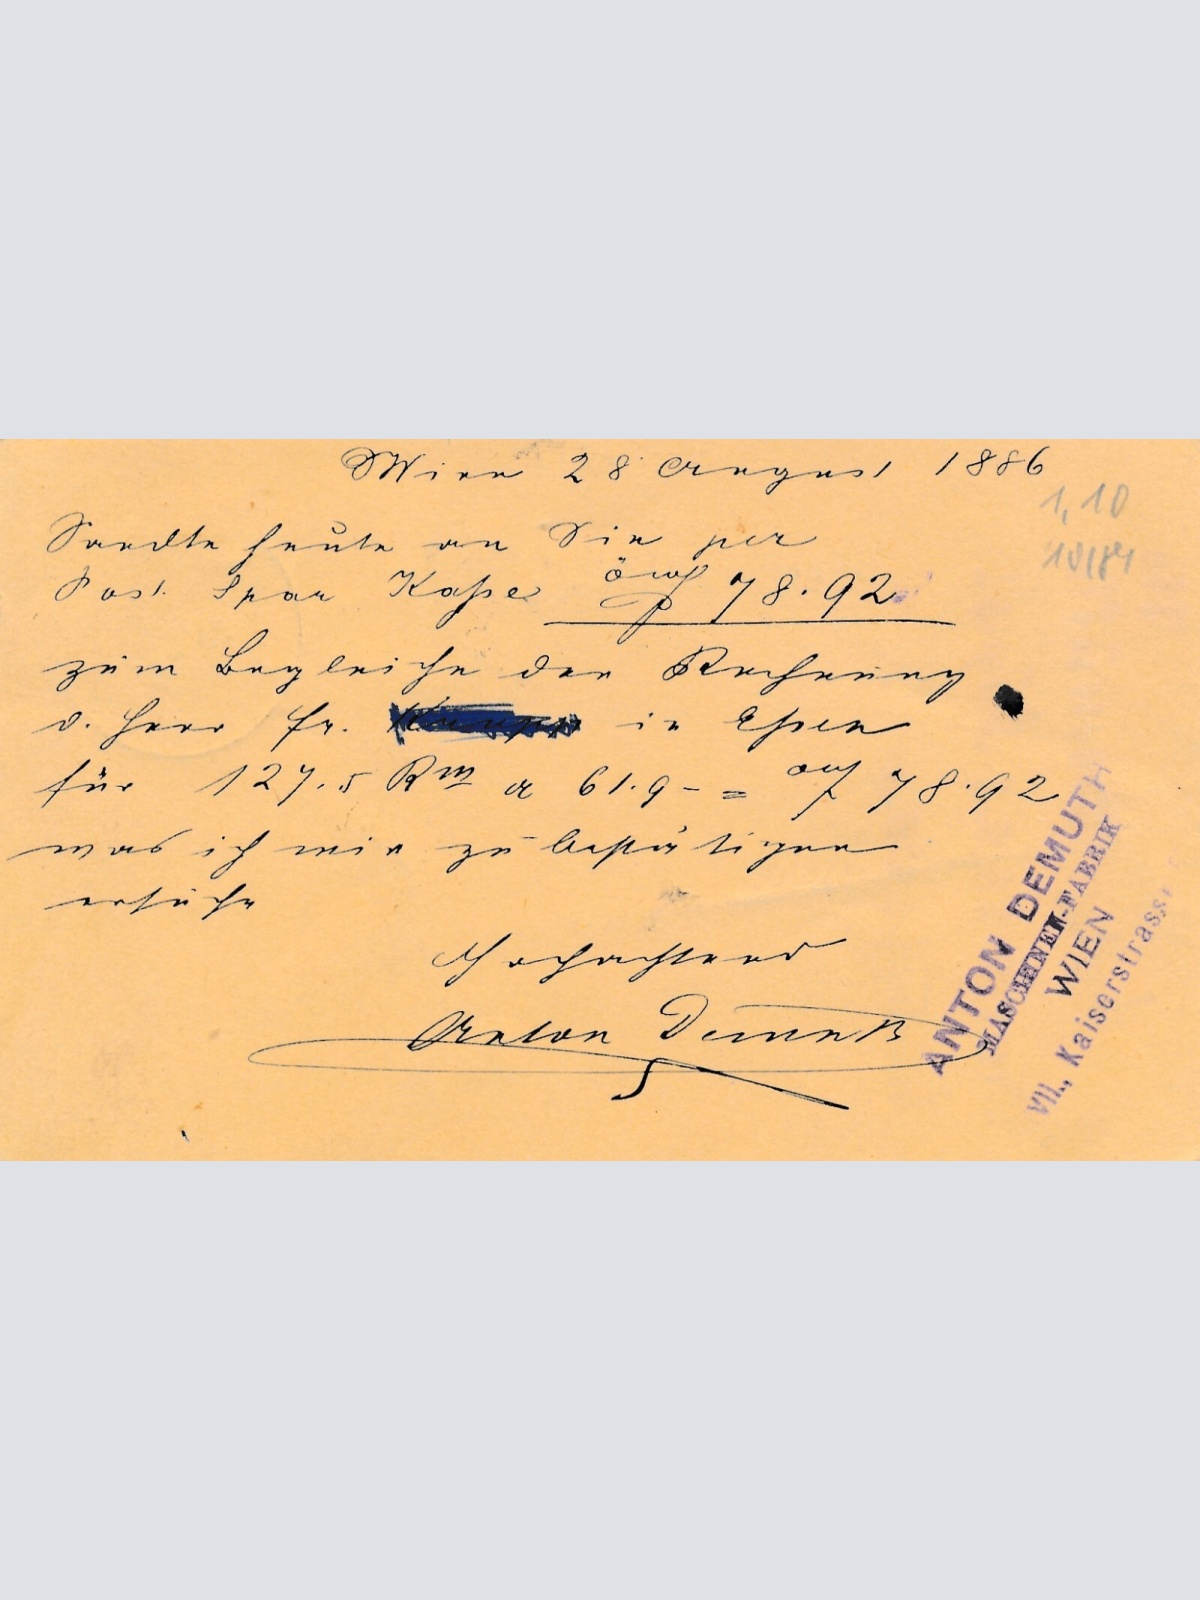 Wien 28 August 1886
1,10
10/84
Sandte heute an Sie per
Post Spar Kasse öwf 78.92
zum Begleiche der Rechnung
v. Herr Fr. in Essen
für 127.5 Rm a 61.9 - = öwf 78.92
was ich mir zu bestätigen
ersuche
Hochachtend
Anton Demuth
ANTON DEMUTH
MASCHINEN-FABRIK
WIEN
VII., Kaiserstrasse